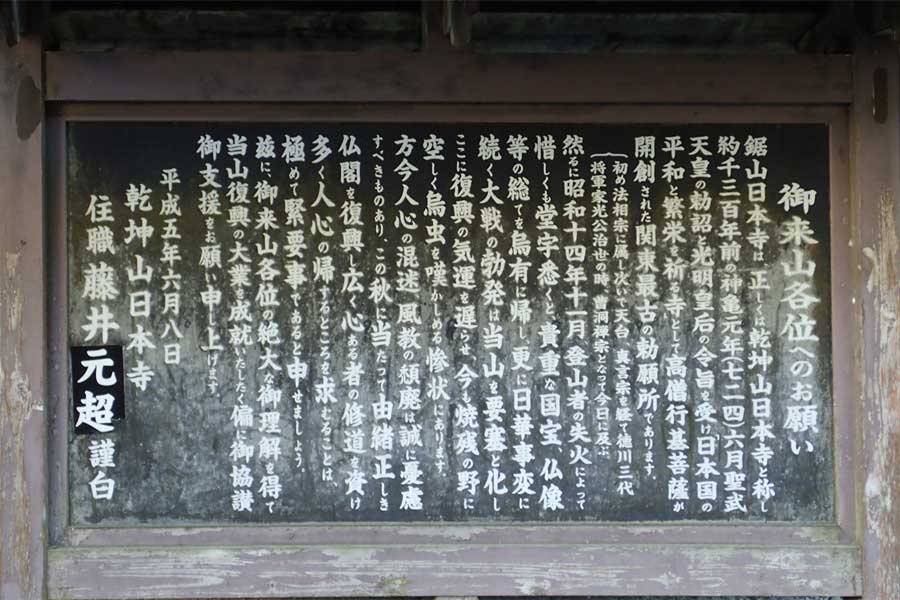 御来山各位へのお願い
鋸山日本寺は正しくは乾坤山日本寺と称し
約千三百年前の神亀元年(七二四)六月聖武
天皇の勅詔と光明皇后の令旨を受け「日本国の
平和と繁栄を祈る寺として高僧行基菩薩が
開創された関東最古の勅願所であります。
(初め法相宗に属し次いで天台、真言宗を経て徳川三代
将軍家光公治世の時、曹洞禅宗となって今日に及ぶ、
然るに昭和十四年十一月登山者の失火によって
惜しくも堂宇悉くと、貴重な国宝、仏像
等の総てを烏有に帰し、更に日華事変に
続く大戦の勃発は当山を要塞と化し
ここに復興の気運を遅らせ、今も焼残の野に
空しく烏虫を嘆かしめる惨状にあります。
方今人心の混迷、風教の頽廃は誠に憂慮
すべきものあり、この秋に当たって由緒正しき
仏閣を復興し広く心ある者の修道を資け
多く人心の帰するところを求むることは、
極めて緊要事であると申せましょう。
茲に、御来山各位の絶大な御理解を得て
当山復興の大業を成就いたしたく偏に御協讃
御支援をお願い申し上げます
平成五年六月八日
乾坤山日本寺
住職藤井元超 謹白